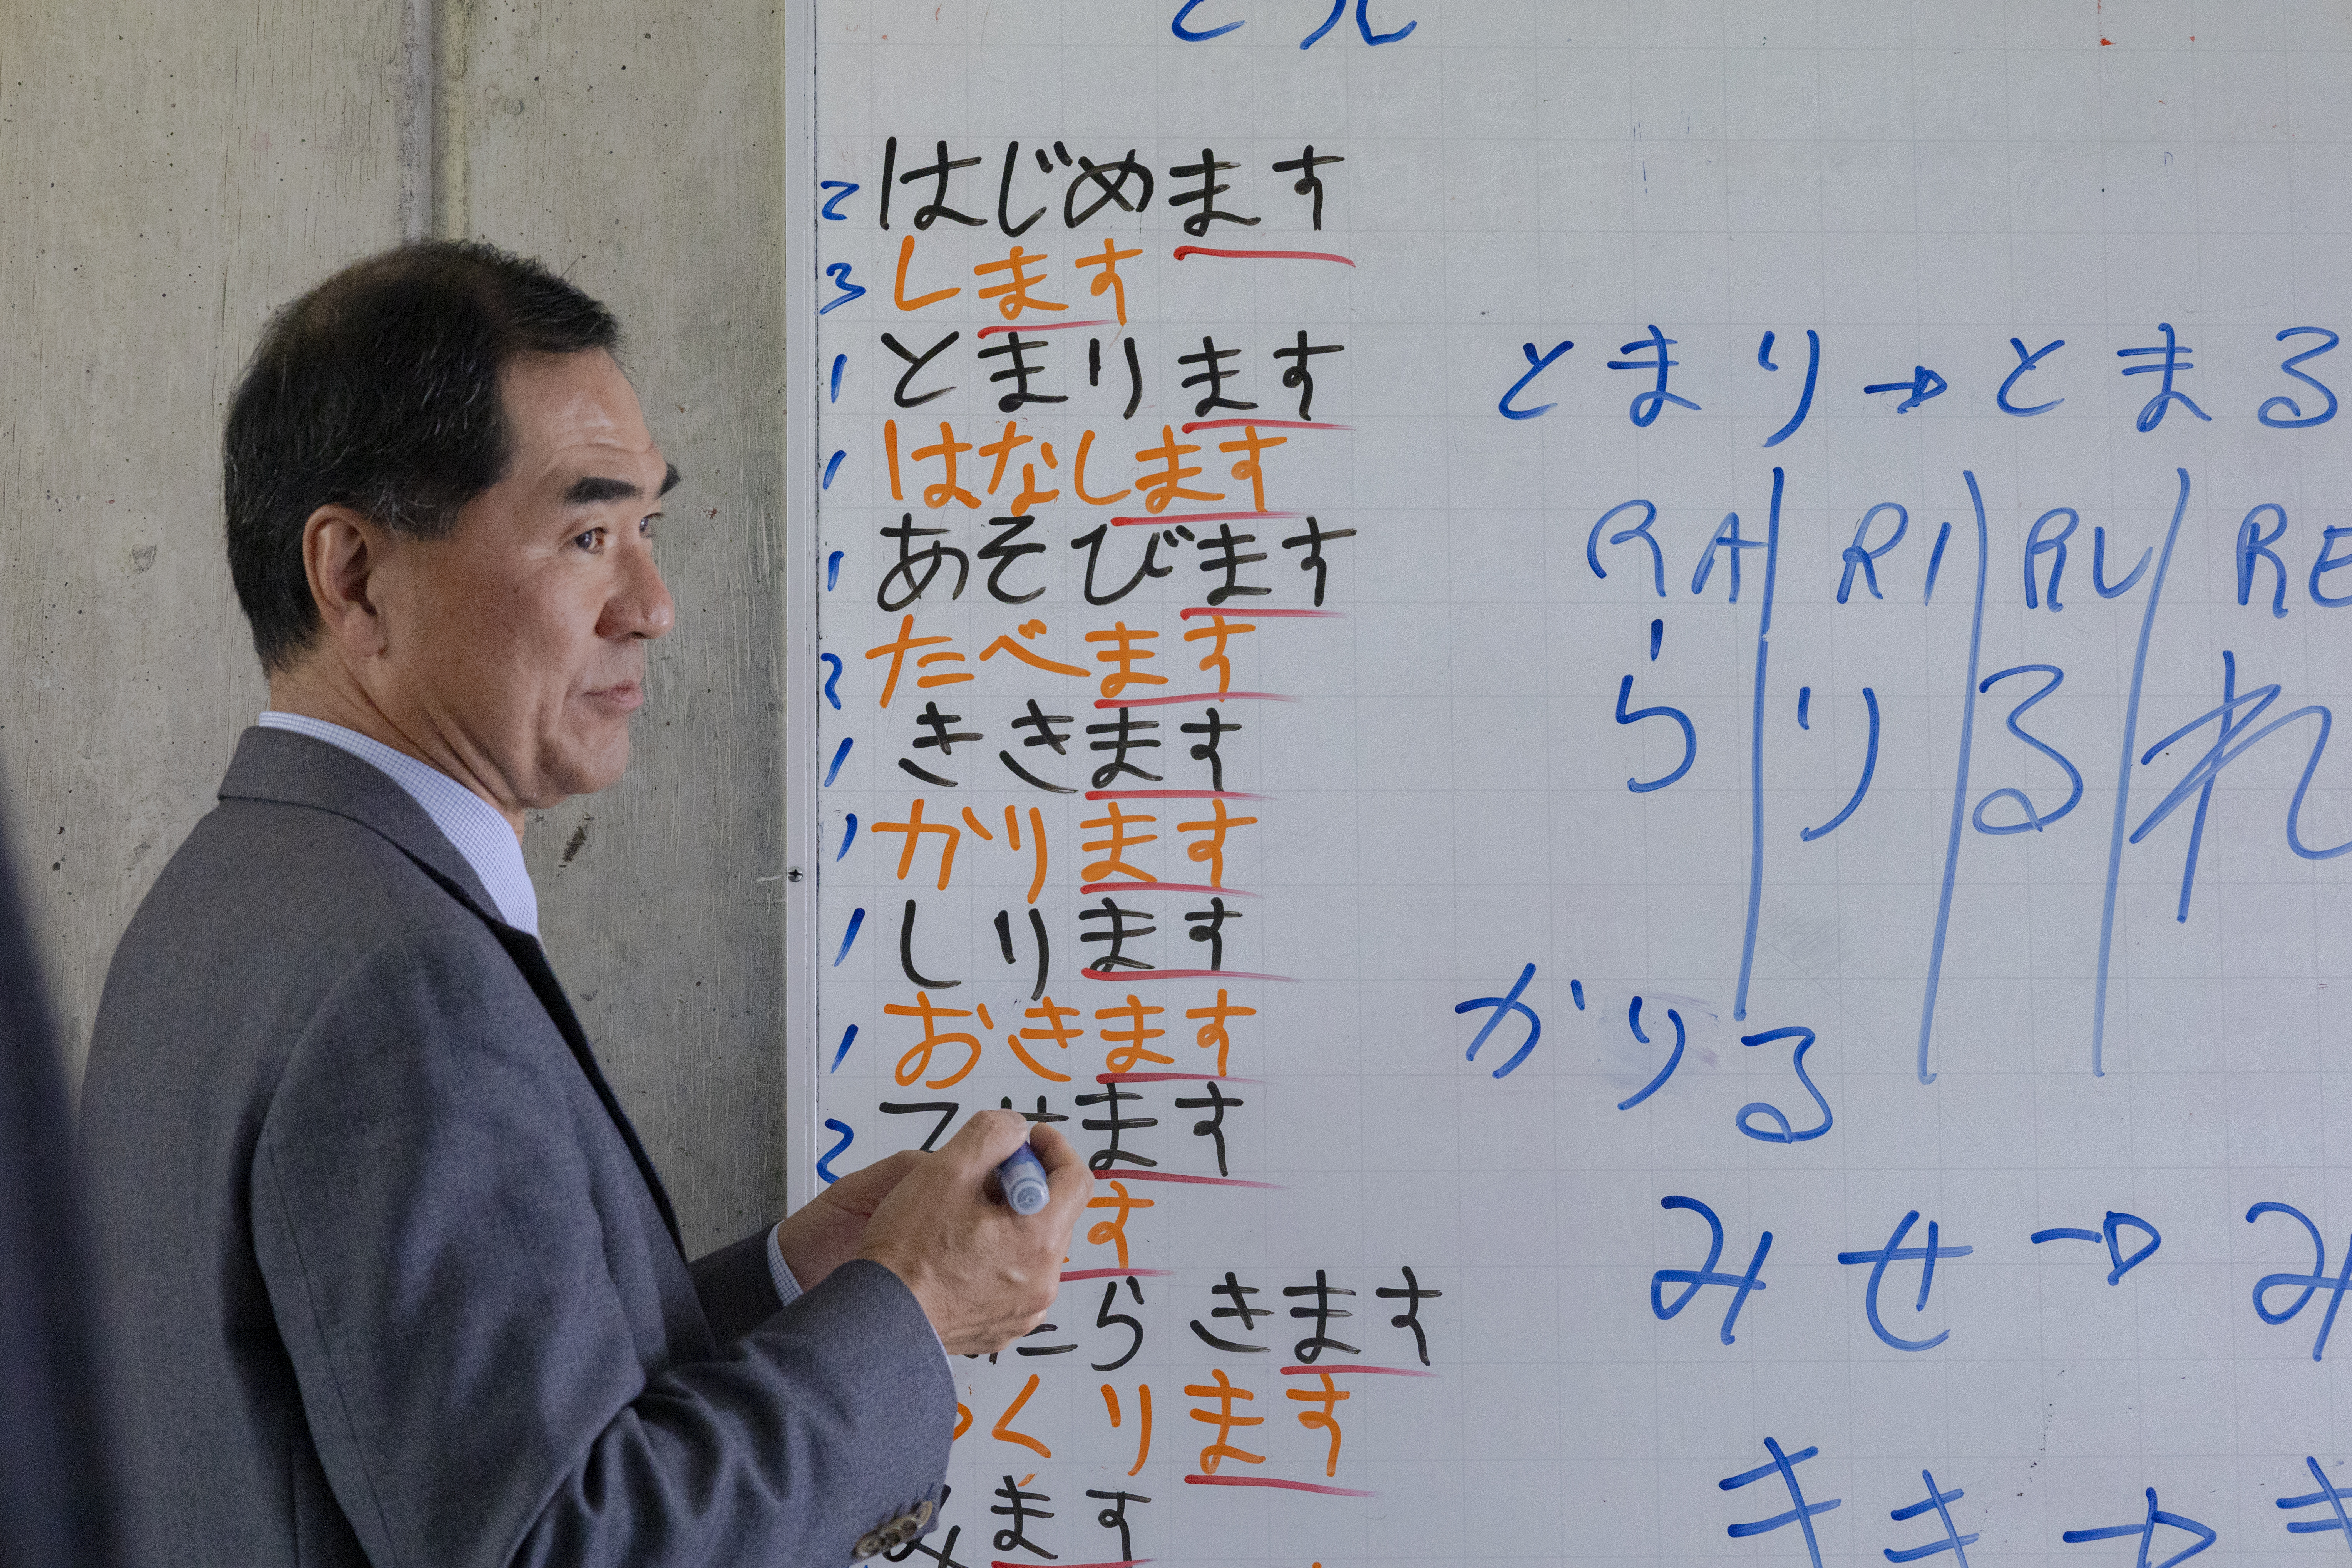 2 はじめます
3 します
1 とまります
1 はなします
1 あそびます
2 たべます
1 ききます
1 かります
1 しります
1 おきます
2 ます
す
たらきます
くります
みます
とまり→とまる
RA RI RU RE
ら り る れ
かりる
みせ→み
きき→き